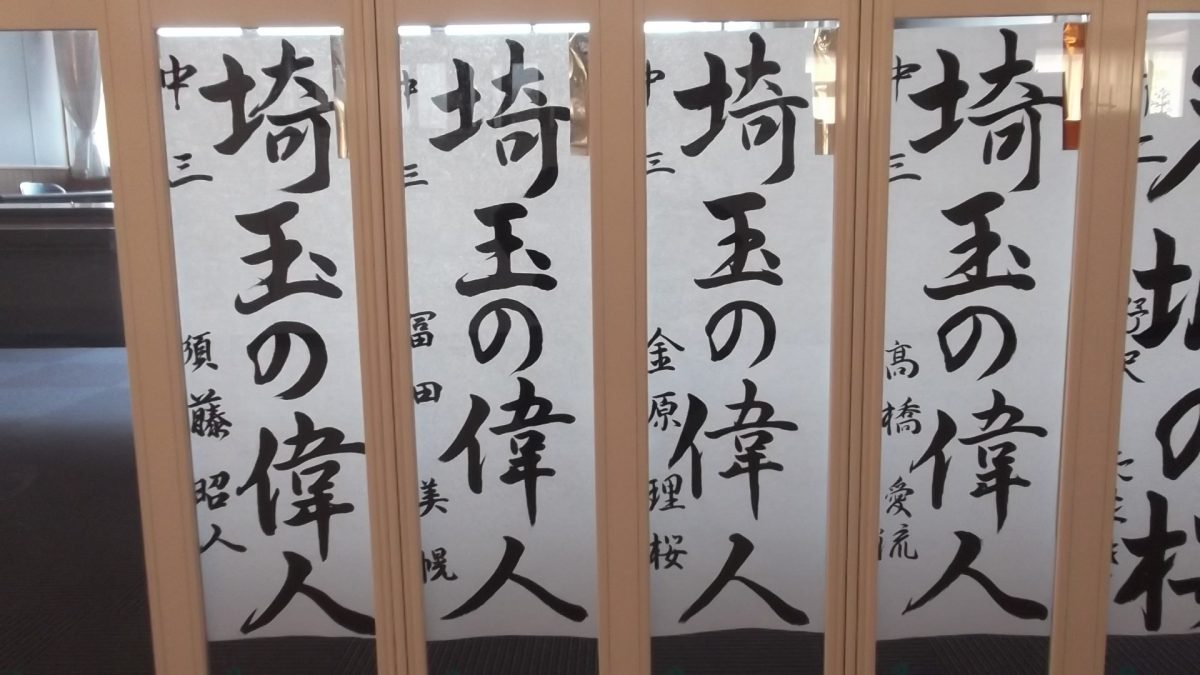 埼玉の偉人
中三 須藤昭人
埼玉の偉人
中三 冨田美幌
埼玉の偉人
中三 金原理桜
埼玉の偉人
中三 高橋愛流
の
野沢